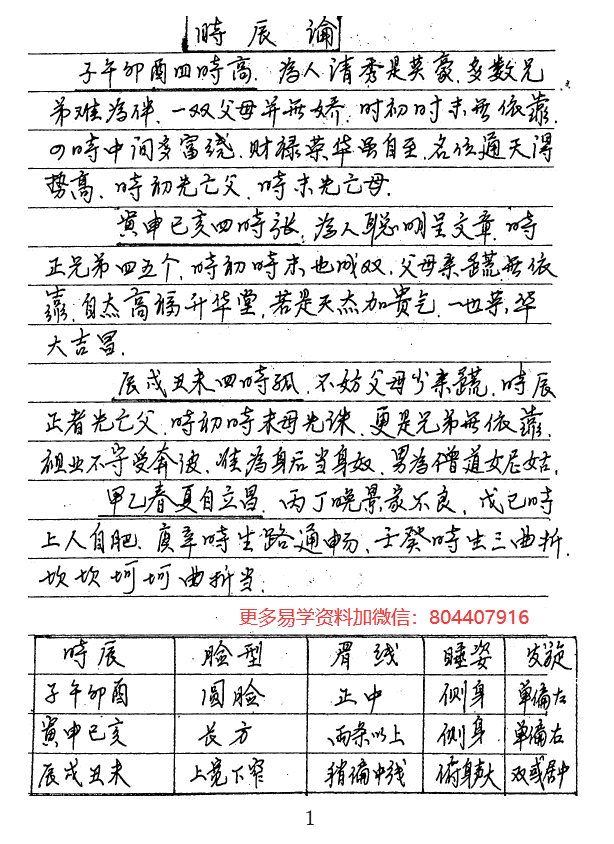 時辰論
子午卯酉四時高.為人清秀是英豪.多数兄
弟难為伴.一双父母并無娇.时初时末無依靠.
の時中间多富绕.财禄荣华虽自至.名位通天得
势高.時初先亡父.時末先亡母.
寅申已亥四時张.為人聪明呈文章.時
正兄弟四五个.時初時末也成双.父母亲疏無依
靠.自杰高福升华堂.若是天杰加贵气.一也荣华
大吉昌.
辰戌丑未四時孤.不妨父母少亲疏.時辰
正者先亡父.時初時末母先诛.更是兄弟無依靠.
祖业不守受奔波.准為身后当身奴.男為僧道女尼姑.
甲乙春夏自立昌.丙丁晚景家不良.戊已時
上人自肥.庚辛時生路通畅.壬癸時生三曲折.
坎坎坷坷曲折当.
更多易学资料加微信：804407916
時辰 脸型 眉线 睡姿 发旋
子午卯酉 圆脸 正中 侧身 单偏左
寅申已亥 长方 两条以上 侧身 单偏右
辰戌丑未 上宽下窄 稍偏中线 俯身大 双或居中
1